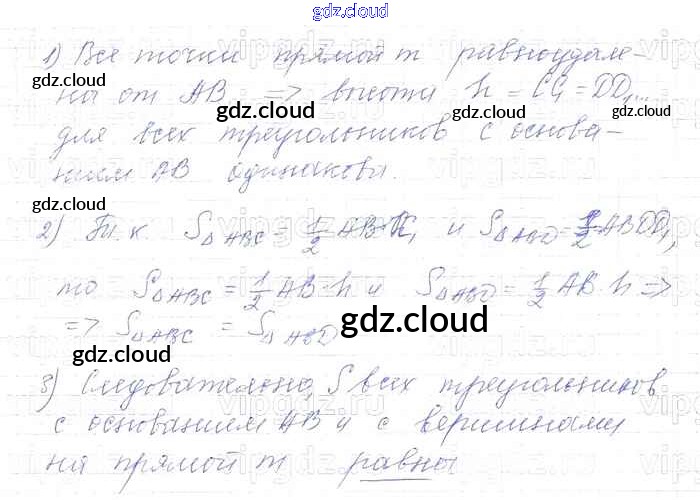 gdz.cloud
1) Все точки прямой m равноудале-
ны от AB => высоты h = CC₁ = DD₁...
для всех треугольников с основа-
нием AB одинаковы.
2) Т.к. S△ABC = 1/2 AB·CC₁ и S△ABD = 1/2 ABDD₁,
то S△ABC = 1/2 AB·h и S△ABD = 1/2 AB·h =>
=> S△ABC = S△ABD
3) Следовательно, S всех треугольников
с основанием AB и с вершинами
на прямой m равны